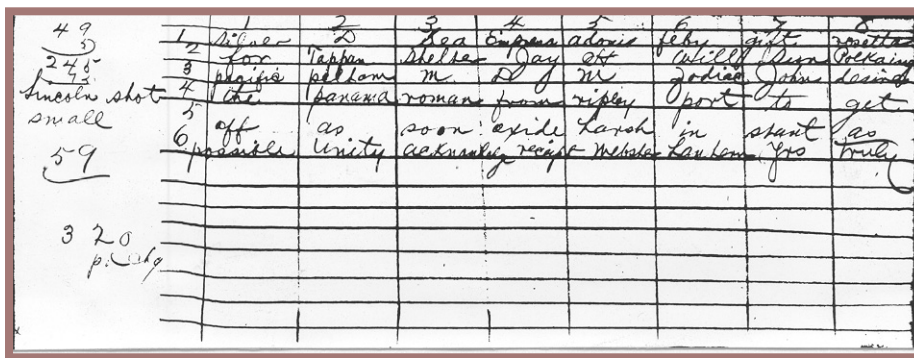 49
5
245
Lincoln shot
small
59
3 20
1 2 3 4 5 6 7 8
1 D Sea Emprera adonis feby gift rosettas
2 for Tappan Shelter Jay off Willy Sun
3 pacific pelham M D M zodiac John dosing
4 the panama roman from ripley port to get
5
6 off as soon oxide harsh in stant as
possible Unity receipt Webster Yrs truly